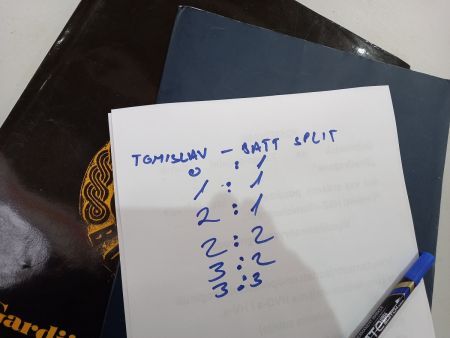 TOMISLAV - BATT SPLIT
0 : 1
1 : 1
2 : 1
2 : 2
3 : 2
3 : 3
Gardij